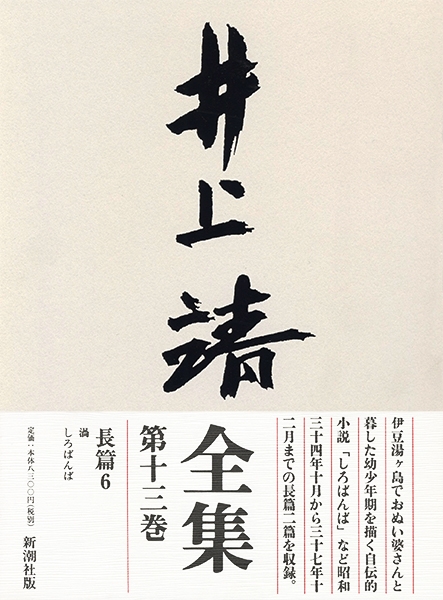 井上靖
伊豆湯ヶ島でおぬい婆さんと
暮した幼少年期を描く自伝的
小説「しろばんば」など昭和
三十四年十月から三十七年十
二月までの長篇二篇を収録。
全集
第十三巻
長篇6
渦
しろばんば
新潮社版
定価：本体八三〇〇円（税別）